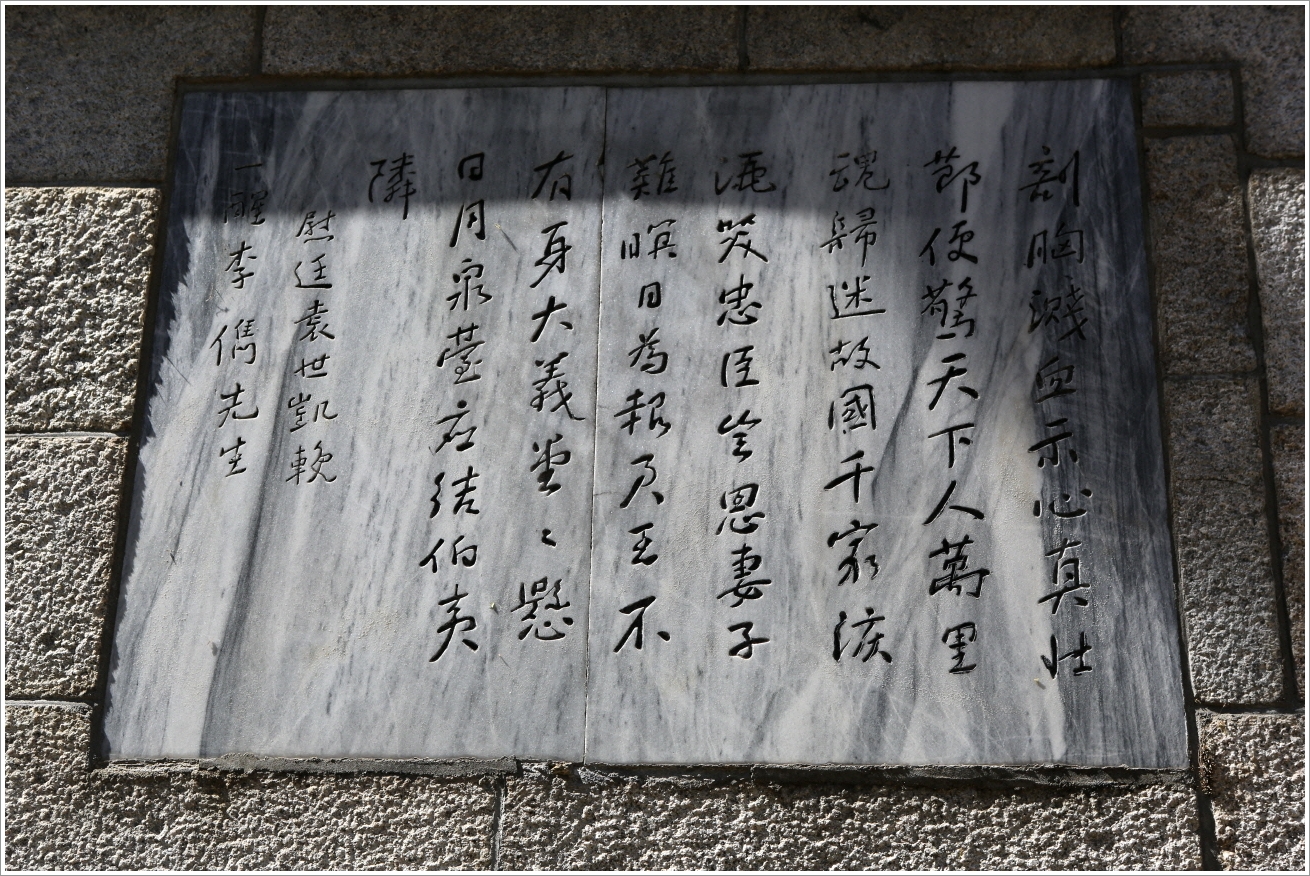 剖胸濺血示心真壯
節便驚天下人萬里
魂歸迷故國千家淚
灑哭忠臣恩妻子
難瞑目為報君王不
有身大義堂々懸
日月泉臺應結伯夷
隣
慰廷袁世凱輓
一醒李儁先生